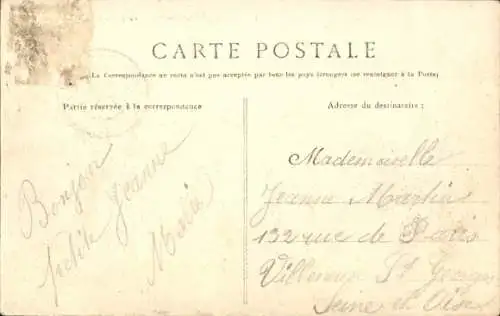 CARTE POSTALE
La Correspondance au recto n'est pas acceptée par tous les pays étrangers (se renseigner à la Poste)
Partie réservée à la correspondance
Adresse du destinataire :
Bonjour
petite Jeanne
Mademoiselle
Jeanne Martin
132 rue de Paris
Villeneuve St Georges
Seine et Oise